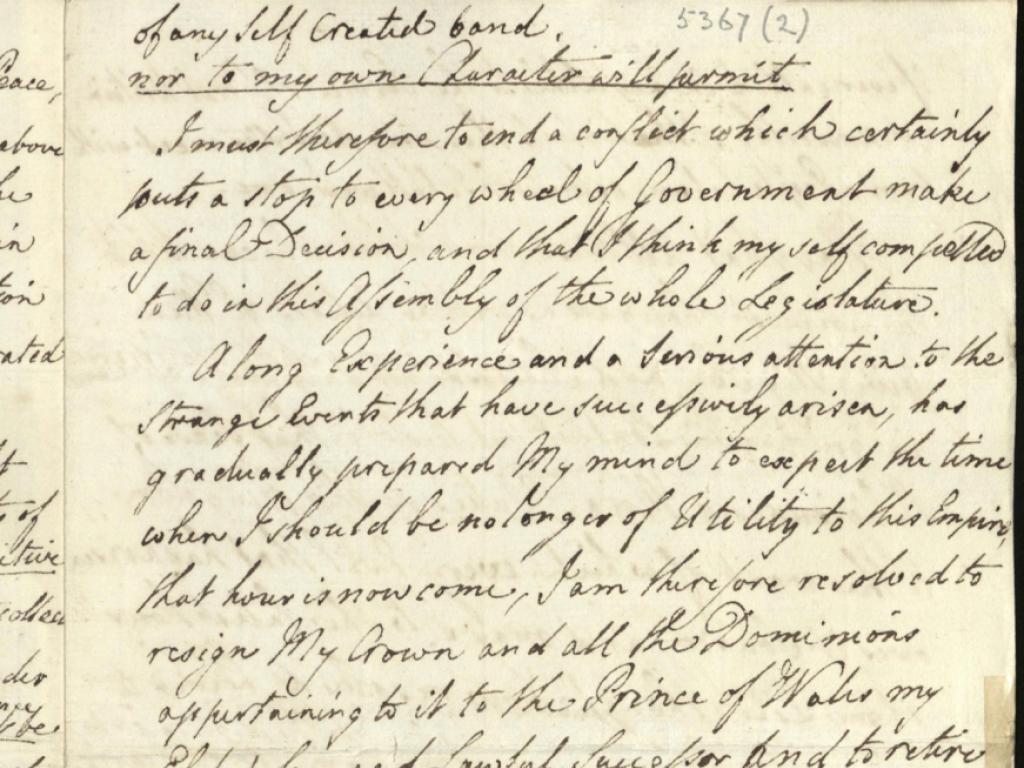 5367 (2)
of any self Created band.
nor to my own Character will permit
I must therefore to end a conflict which certainly
puts a stop to every wheel of Government make
a final Decision, and that I think my self compelled
to do in this Assembly of the whole Legislature.
A long Experience and a serious attention to the
Strange Events that have successively arisen, has
gradually prepared My mind to expect the time
when I should be no longer of Utility to this Empire,
that hour is now come, I am therefore resolved to
resign My Crown and all the Dominions
appertaining to it to the Prince of Wales my
Lawful Successor and to retire
Peace,
above
in
of